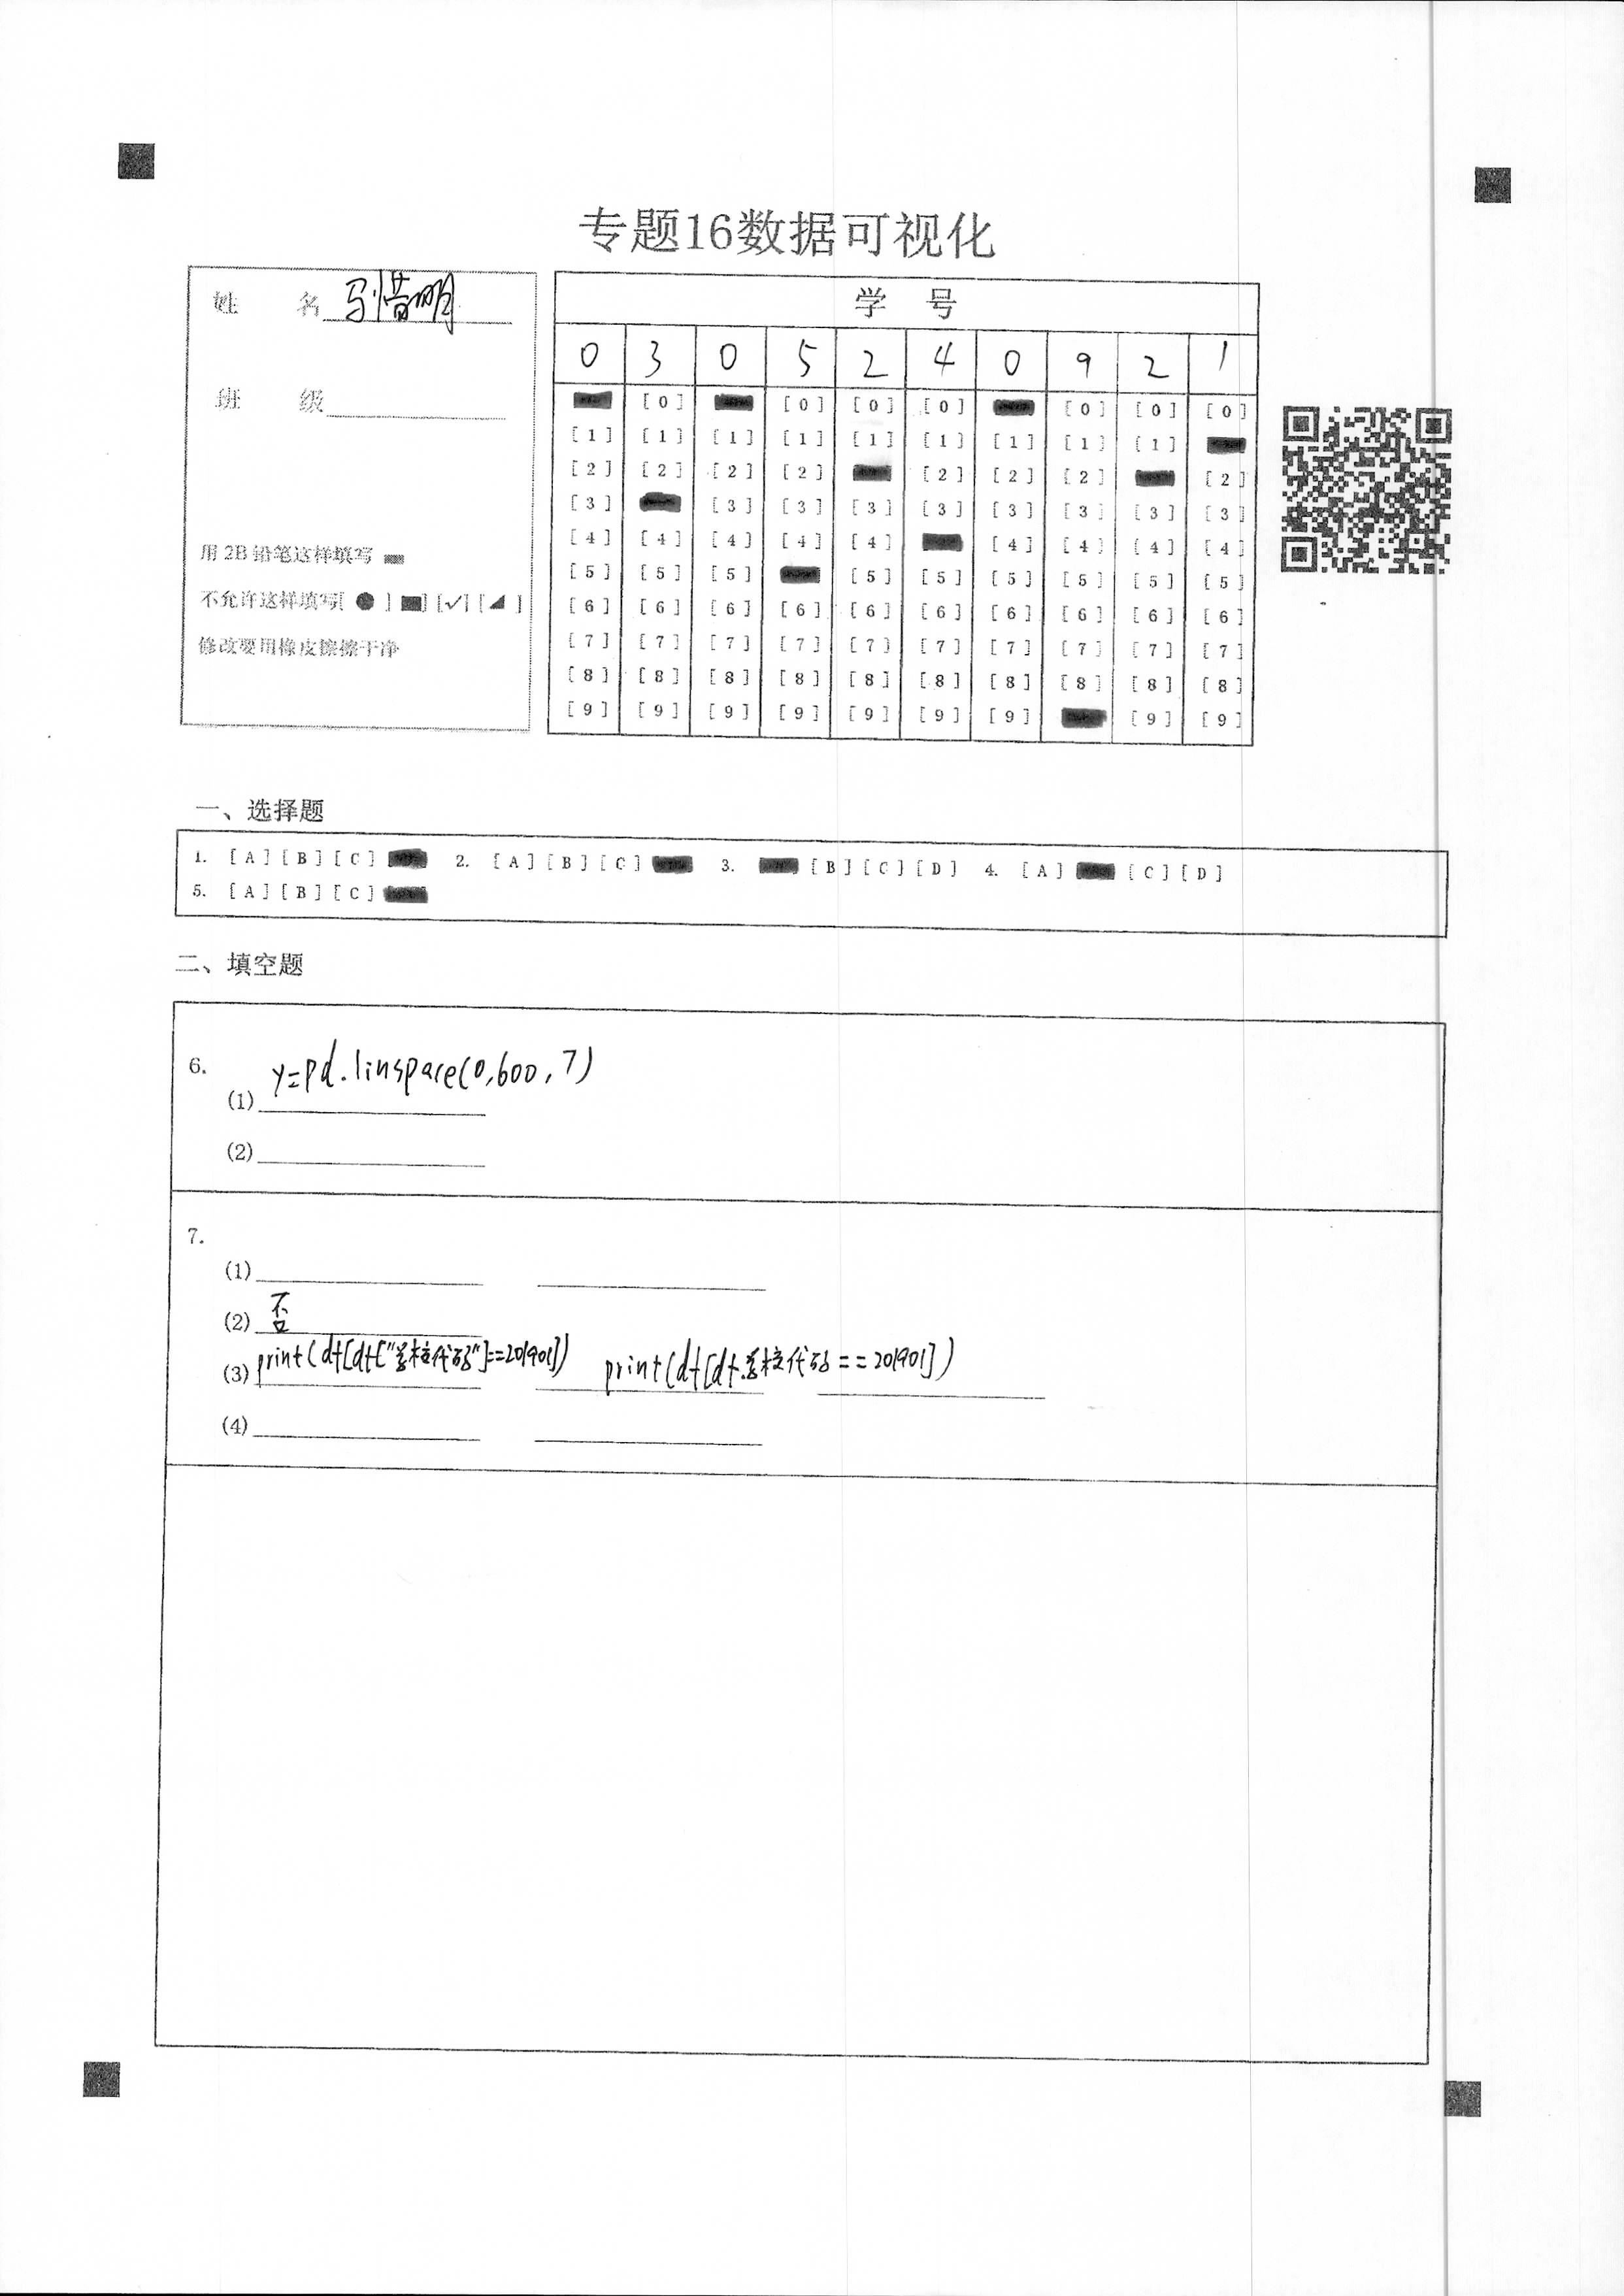 专题16数据可视化
姓 名
班 级
用 2B 铅笔这样填写
不允许这样填写[ ● ] [■] [✓] [◢ ]
修改要用橡皮擦擦干净
学 号
0 3 0 5 2 4 0 9 2 1
[0] [0] [0] [0] [0] [0]
[1] [1] [1] [1] [1] [1] [1] [1] [1]
[2] [2] [2] [2] [2] [2] [2] [2]
[3] [3] [3] [3] [3] [3] [3] [3] [3]
[4] [4] [4] [4] [4] [4] [4] [4] [4]
[5] [5] [5] [5] [5] [5] [5] [5] [5]
[6] [6] [6] [6] [6] [6] [6] [6] [6] [6]
[7] [7] [7] [7] [7] [7] [7] [7] [7] [7]
[8] [8] [8] [8] [8] [8] [8] [8] [8] [8]
[9] [9] [9] [9] [9] [9] [9] [9] [9]
一、选择题
1. [A] [B] [C] 2. [A] [B] [C] 3. [B] [C] [D] 4. [A] [C] [D]
5. [A] [B] [C]
二、填空题
6.
(1) y=pd.linspace(0,600,7)
(2)
7.
(1)
(2) 否
(3) print(df[df["学校代码"]==201901]) print(df[df.学校代码==201901])
(4)